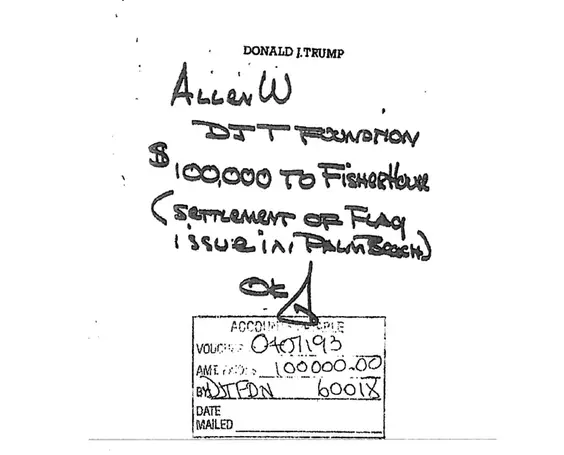 DONALD J. TRUMP
ALLEN W
DJT FOUNDATION
$ 100,000 TO FISHER HOUSE
(SETTLEMENT OF FLAG
ISSUE IN PALM BEACH)
OK
ACCOUNTS PAYABLE
VOUCHER 0401193
AMT 100000.00
BY DJTFDN 60018
DATE
MAILED